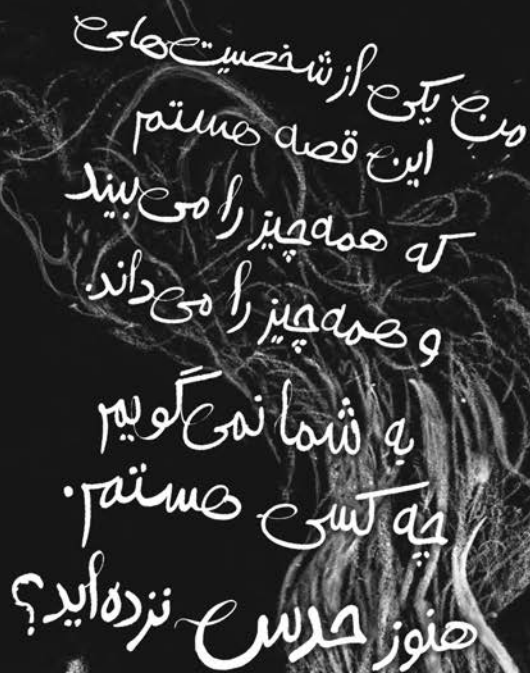 من یکی از شخصیت‌های
این قصه هستم
که همه‌چیز را می‌بیند
و همه‌چیز را می‌داند.
به شما نمی‌گویم
چه کسی هستم.
هنوز حدس نزده‌اید؟